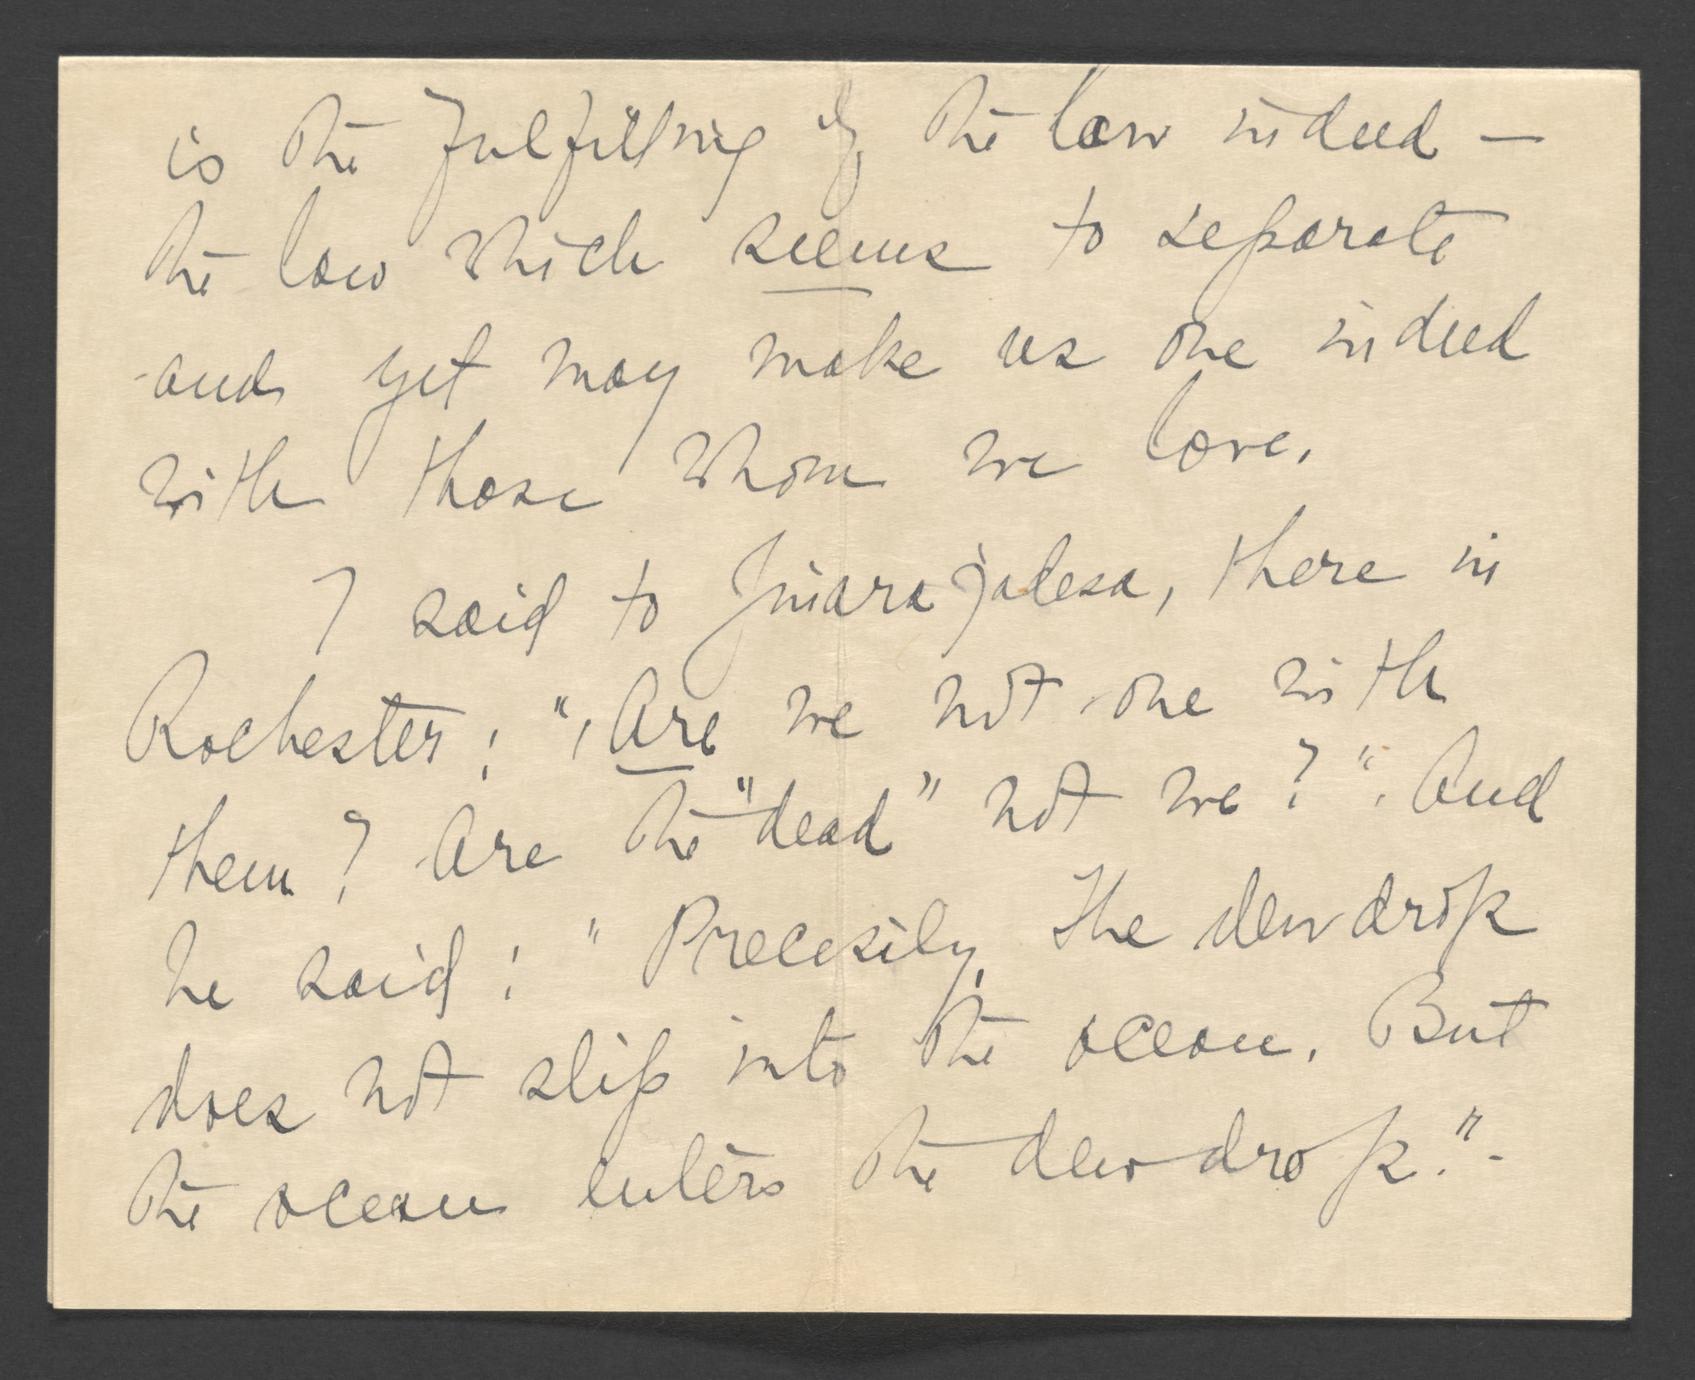 is the fulfilling of the law indeed —
the law which seems to separate
and yet may make us one indeed
with those whom we love.
I said to Jinarajadesa, there in
Rochester: "Are we not one with
them? Are the "dead" not we?" And
he said: "Precesily. The dewdrop
does not slip into the ocean. But
the ocean enters the dewdrop."-